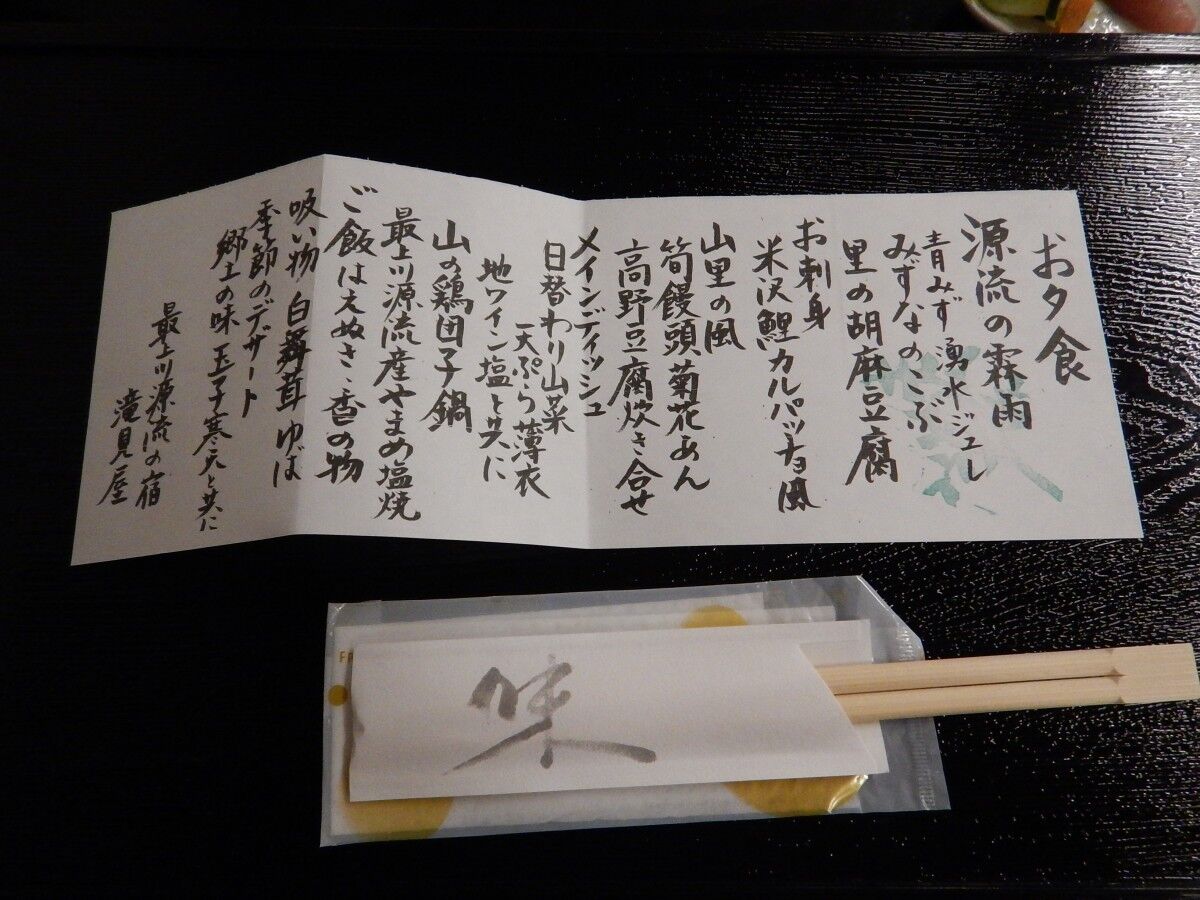 お夕食
源流の霖雨
青みず湧水ジュレ
みずなのこぶ
里の胡麻豆腐
お刺身
米沢鯉カルパッチョ風
山里の風
筍饅頭菊花あん
高野豆腐炊き合せ
メインディッシュ
日替わり山菜
天ぷら薄衣
地ワイン塩と共に
山の鶏団子鍋
最上川源流産やまめ塩焼
ご飯はえぬき、香の物
吸い物 白舞茸ゆば
季節のデザート
郷土の味 玉子寒天と共に
最上川源流の宿
滝見屋
味